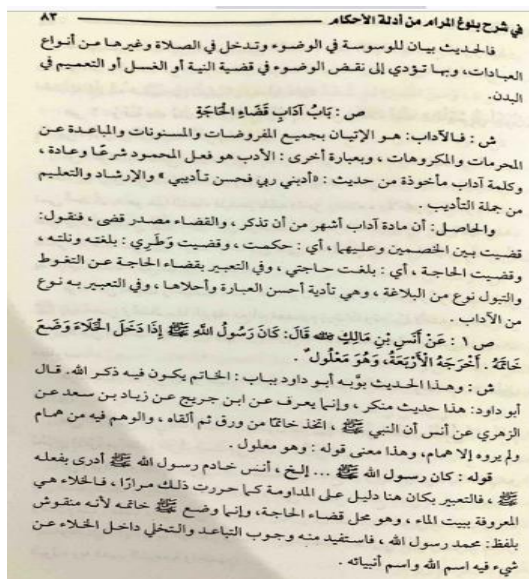 في شرح بلوغ المرام من أدلة الأحكام ــــــــ ٨٣
فالحديث بيان للوسوسة في الوضوء وتدخل في الصلاة وغيرها من أنواع
العبادات، وبها تؤدي إلى نقض الوضوء في قضية النية أو الغسل أو التعميم في
البدن.
ص : بَابُ آدَابِ قَضَاءِ الْحَاجَةِ
ش : فـالآداب: هـو الإتيان بجميع المفروضات والمسنونات والمباعدة عـن
المحرمات والمكروهات ، وبعبارة أخرى : الأدب هو فعل المحمود شرعًا وعادة ،
وكلمة آداب مأخوذة من حديث : «أدبني ربي فحسن تـأديبي» والإرشاد والتعليم
من جملة التأديب .
والحاصل: أن مادة آداب أشهر من أن تذكر ، والقضاء مصدر قضى ، فنقول:
قضيت بين الخصمين وعليهما ، أي : حكمت ، وقضيت وَطَرِي : بلغته ونلته ،
وقضيت الحاجة ، أي : بلغت حاجتي ، وفي التعبير بقضاء الحاجة عن التغوط
والتبول نوع من البلاغة ، وهي تأدية أحسن العبارة وأحلاها ، وفي التعبير به نوع
من الآداب .
ص ١ : عَنْ أَنَسِ بْنِ مَالِكٍ ﵁ قَالَ: كَانَ رَسُولُ اللَّهِ ﷺ إِذَا دَخَلَ الْخَلَاءَ وَضَعَ
خَاتَمَهُ . أَخْرَجَهُ الْأَرْبَعَةُ، وَهُوَ مَعْلُول .
ش : وهـذا الحـديث بوَّبـه أبـو داود ببـاب : الخـاتم يكـون فيـه ذكـر الله. قـال
أبو داود: هذا حديث منكر ، وإنما يعرف عن ابن جريج عن زياد بن سعد عن
الزهري عن أنس أن النبي ﷺ ، اتخذ خاتمًا من ورق ثم ألقاه ، والوهم فيه من همام
ولم يروه إلا همام، وهذا معنى قوله : وهو معلول .
قوله : كان رسول الله ﷺ ... إلخ ، أنس خادم رسول الله ﷺ أدرى بفعلـه
ﷺ ، فالتعبير بكان هنا دليل على المداومة كـما حررت ذلـك مـرارًا ، فـالخلاء هـي
المعروفة ببيت الماء ، وهو محل قضاء الحاجة، وإنما وضع ﷺ خاتمـه لأنـه منقـوش
بلفظ: محمد رسول الله ، فاستفيد منـه وجـوب التباعـد والتخلي داخـل الخـلاء عـن
شيء فيه اسم الله واسم أنبيائه .